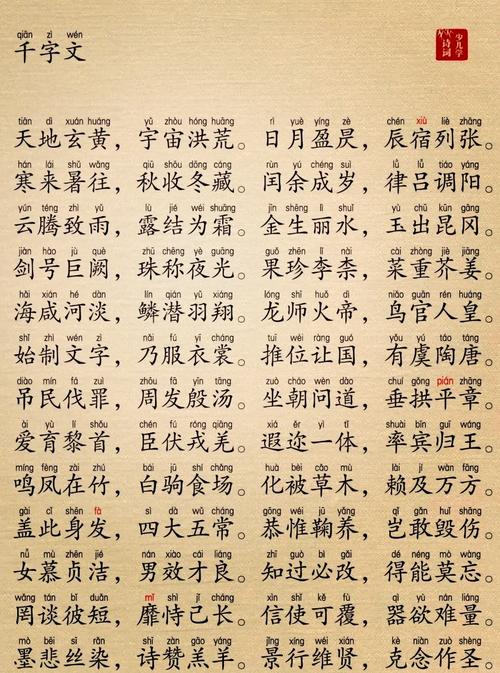 qiān zì wén
千字文
少儿学
诗词
tiān dì xuán huáng yǔ zhòu hóng huāng rì yuè yíng zè chén xiù liè zhāng
天地玄黄，宇宙洪荒。日月盈昃，辰宿列张。
hán lái shǔ wǎng qiū shōu dōng cáng rùn yú chéng suì lǜ lǚ tiáo yáng
寒来暑往，秋收冬藏。闰余成岁，律吕调阳。
yún téng zhì yǔ lù jié wéi shuāng jīn shēng lì shuǐ yù chū kūn gāng
云腾致雨，露结为霜。金生丽水，玉出昆冈。
jiàn hào jù què zhū chēng yè guāng guǒ zhēn lǐ nài cài zhòng jiè jiāng
剑号巨阙，珠称夜光。果珍李柰，菜重芥姜。
hǎi xián hé dàn lín qián yǔ xiáng lóng shī huǒ dì niǎo guān rén huáng
海咸河淡，鳞潜羽翔。龙师火帝，鸟官人皇。
shǐ zhì wén zì nǎi fú yī cháng tuī wèi ràng guó yǒu yú táo táng
始制文字，乃服衣裳。推位让国，有虞陶唐。
diào mín fá zuì zhōu fā yīn tāng zuò cháo wèn dào chuí gǒng pián zhāng
吊民伐罪，周发殷汤。坐朝问道，垂拱平章。
ài yù lí shǒu chén fú róng qiāng xiá ěr yì tǐ shuài bīn guī wáng
爱育黎首，臣伏戎羌。遐迩一体，率宾归王。
míng fèng zài zhú bái jū shí chǎng huà bèi cǎo mù lài jí wàn fāng
鸣凤在竹，白驹食场。化被草木，赖及万方。
gài cǐ shēn fà sì dà wǔ cháng gōng wéi jū yǎng qǐ gǎn huǐ shāng
盖此身发，四大五常。恭惟鞠养，岂敢毁伤。
nǚ mù zhēn jié nán xiào cái liáng zhī guò bì gǎi dé néng mò wàng
女慕贞洁，男效才良。知过必改，得能莫忘。
wǎng tán bǐ duǎn mǐ shì jǐ cháng xìn shǐ kě fù qì yù nán liáng
罔谈彼短，靡恃己长。信使可覆，器欲难量。
mò bēi sī rǎn shī zàn gāo yáng jǐng xíng wéi xián kè niàn zuò shèng
墨悲丝染，诗赞羔羊。景行维贤，克念作圣。